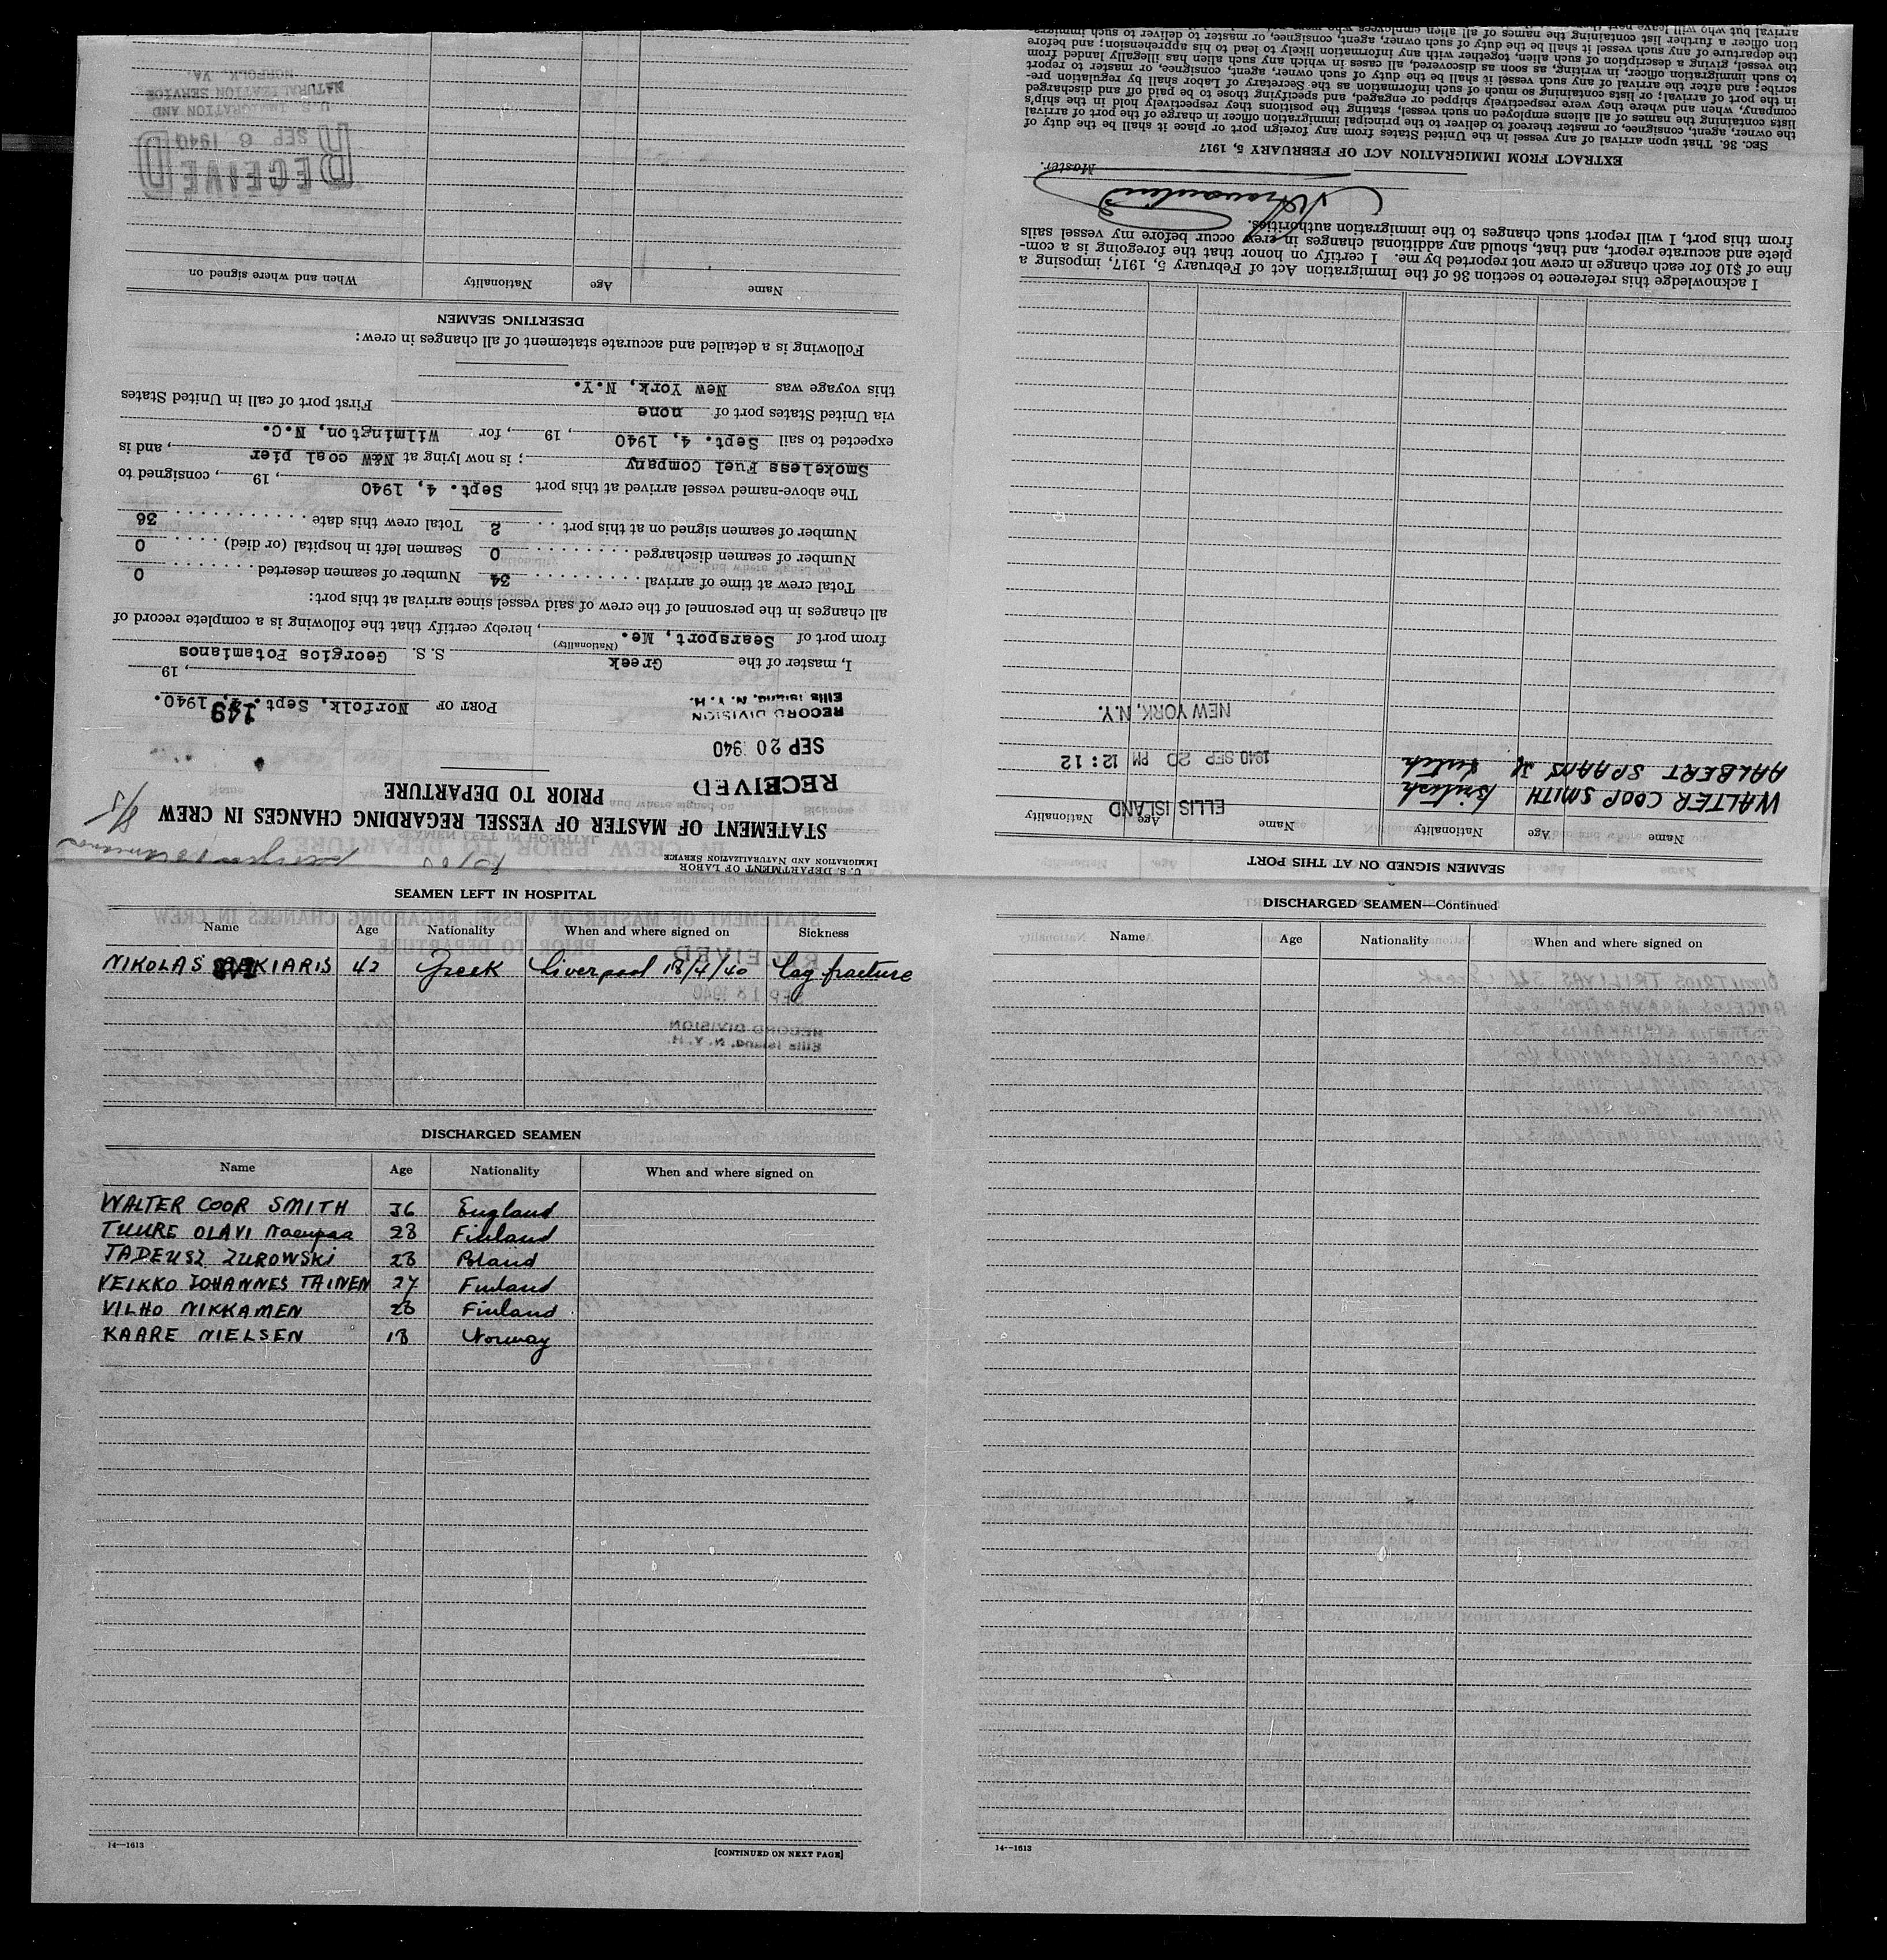 U. S. DEPARTMENT OF LABOR
IMMIGRATION AND NATURALIZATION SERVICE
STATEMENT OF MASTER OF VESSEL REGARDING CHANGES IN CREW
PRIOR TO DEPARTURE
RECEIVED
SEP 20 1940
RECORD DIVISION
Ellis Island, N. Y. H.
PORT OF Norfolk, Sept. 1940.
149
, 19
I, master of the Greek S. S. Georgios Potamianos
(Nationality)
from port of Searsport, Me. , hereby certify that the following is a complete record of
all changes in the personnel of the crew of said vessel since arrival at this port:
Total crew at time of arrival 34 Number of seamen deserted 0
Number of seamen discharged 0 Seamen left in hospital (or died) 0
Number of seamen signed on at this port 2 Total crew this date 36
The above-named vessel arrived at this port Sept. 4, 1940 , 19 , consigned to
Smokeless Fuel Company ; is now lying at N&W coal pier , and is
expected to sail Sept. 4, 1940 , 19 , for Wilmington, N.C.
via United States port of none First port of call in United States
this voyage was New York, N.Y.
Following is a detailed and accurate statement of all changes in crew:
DESERTING SEAMEN
Name Age Nationality When and where signed on
RECEIVED
SEP 6 1940
U. S. IMMIGRATION AND
NATURALIZATION SERVICE
NORFOLK, VA.
SEAMEN SIGNED ON AT THIS PORT
Name Age Nationality Name Age Nationality
WALTER COOP SMITH British
AALBERT SPAANS Dutch
ELLIS ISLAND
1940 SEP 20 PM 12:12
NEW YORK, N.Y.
I acknowledge this reference to section 36 of the Immigration Act of February 5, 1917, imposing a
fine of $10 for each change in crew not reported by me. I certify on honor that the foregoing is a com-
plete and accurate report, and that, should any additional changes in crew occur before my vessel sails
from this port, I will report such changes to the immigration authorities.
Master.
EXTRACT FROM IMMIGRATION ACT OF FEBRUARY 5, 1917
SEC. 36. That upon arrival of any vessel in the United States from any foreign port or place it shall be the duty of
the owner, agent, consignee, or master thereof to deliver to the principal immigration officer in charge of the port of arrival
lists containing the names of all aliens employed on such vessel, stating the positions they respectively hold in the ship's
company, when and where they were respectively shipped or engaged, and specifying those to be paid off and discharged
in the port of arrival; or lists containing so much of such information as the Secretary of Labor shall by regulation pre-
scribe; and after the arrival of any such vessel it shall be the duty of such owner, agent, consignee, or master to report
to such immigration officer, in writing, as soon as discovered, all cases in which any such alien has illegally landed from
the vessel, giving a description of such alien, together with any information likely to lead to his apprehension; and before
the departure of any such vessel it shall be the duty of such owner, agent, consignee, or master to deliver to such immigra-
tion officer a further list containing the names of all alien employees who were
arrival but who will leave port
SEAMEN LEFT IN HOSPITAL
Name Age Nationality When and where signed on Sickness
NIKOLAS 42 Greek Liverpool 18/4/40 Leg fracture
DISCHARGED SEAMEN
Name Age Nationality When and where signed on
WALTER COOR SMITH 36 England
TUURE OLAVI 28 Finland
TADEUSZ ZUROWSKI 28 Poland
VEIKKO JOHANNES TAINEN 27 Finland
VILHO NIKKAMEN 28 Finland
KAARE NIELSEN 18 Norway
14—1613
[CONTINUED ON NEXT PAGE]
DISCHARGED SEAMEN—Continued
Name Age Nationality When and where signed on
14—1613